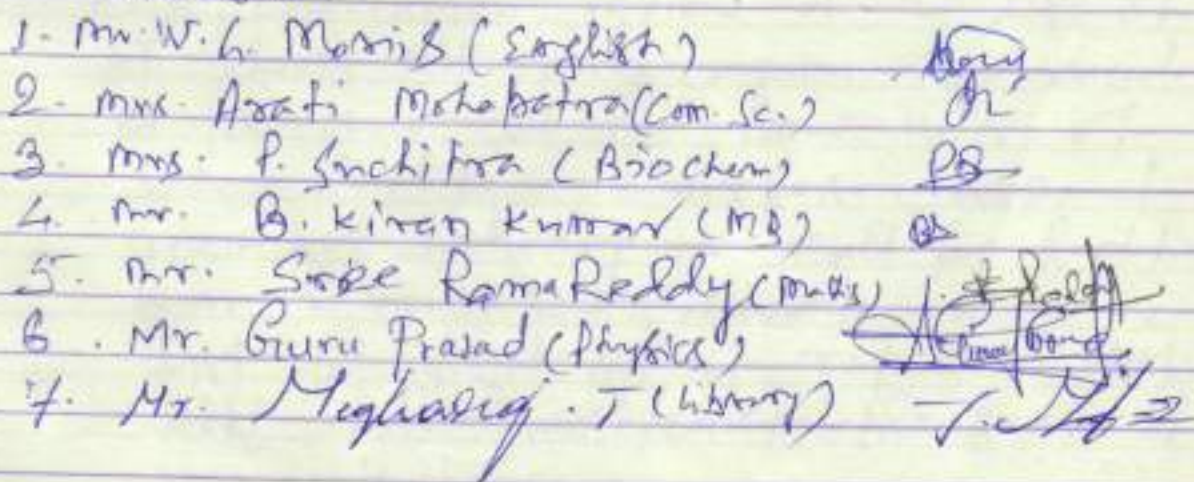 1. Mr. W. G. Morris (English)
2. Mrs. Arati Mohapatra (Com. Sc.)
3. Mrs. P. Suchitra (Biochem)
4. Mr. B. Kiran Kumar (MB)
5. Mr. Rama Reddy (Maths) Reddy
6. Mr. Guru Prasad (Physics)
7. Mr. Megharaj. T (Library)